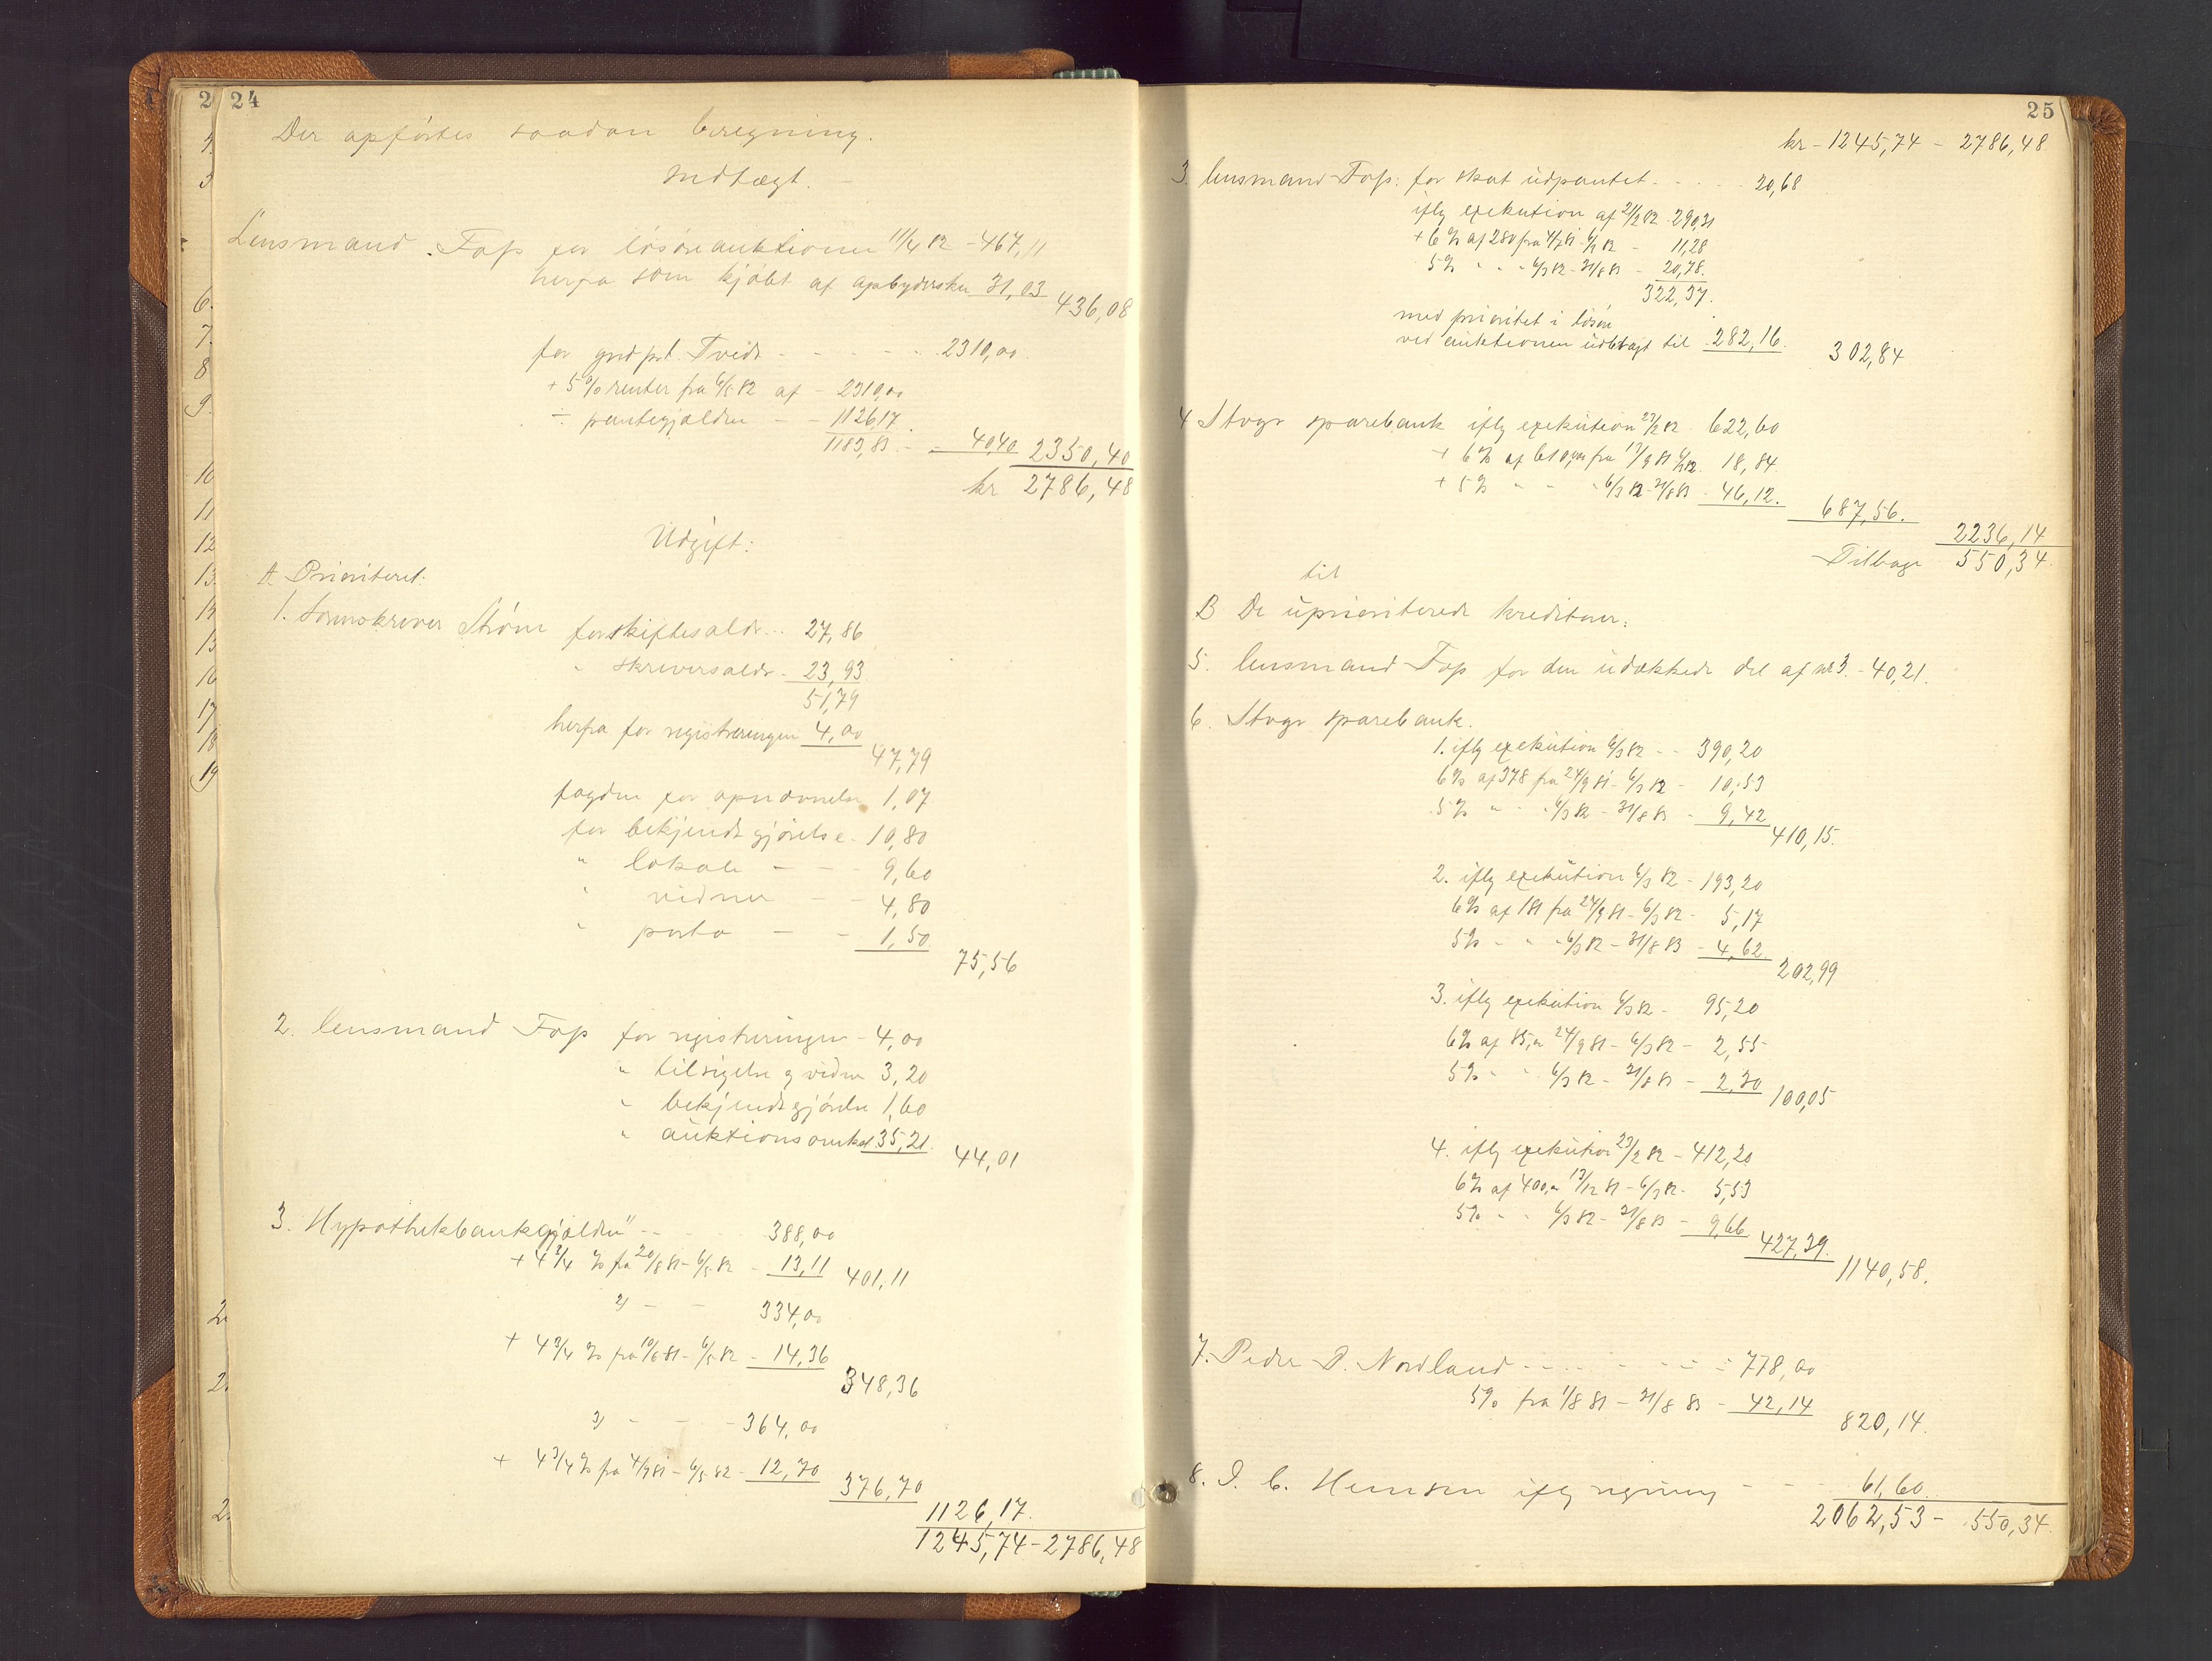 24
Der opførtes saadan beregning.
Indtægt.
Lensmand Fop for løsøreauktionen 11/4 82 - 467,11
herfra som kjøbt af opbydersken 31,03
436,08
for grd prt. Tveide - - - - 2310,00
+ 5% renter fra 6/5 82 af - 2310,00
÷ pantegjælden - - 1126,17
1183,83 - - 40,40 2350,40
kr 2786,48
Udgift:
A. Prioriteret:
1. Sorenskriver Strøm for skiftesalær - 27,86
" skriversalær - 23,93
51,79
herfra for registreringen 4,00
47,79
fogden for opnævnelse 1,07
for bekjendtgjørelse - 10,80
" lokale - - - 9,60
" vidner - - 4,80
" porto - - 1,50
75,56
2. lensmand Fop for registreringen - 4,00
" tilsigelse og vidne 3,20
" bekjendtgjørelse 1,60
" auktionsomkst 35,21
44,01
3. Hypothekbankgjælden 1) - - 388,00
+ 4 3/4 % fra 20/8 81 - 6/5 82 - 13,11 401,11
2) - - 334,00
+ 4 3/4 % fra 10/6 81 - 6/5 82 - 14,36
348,36
3) - - - 364,00
+ 4 3/4 % fra 4/9 81 - 6/5 82 - 12,70
376,70
1126,17.
1245,74 - 2786,48
25
kr - 1245,74 - 2786,48
3. lensmand Fop: for skat udpantet - - - 20,68
iflg exekution af 21/2 82 290,31
+ 6% af 280 fra 4/7 81 - 6/3 82 - 11,28
5% " " - 6/3 82 - 31/8 83 - 20,78.
322,37.
med prioritet i løsøre
ved auktionen udbragt til 282,16. 302,84
4 Stvgr sparebank iflg exekution 23/2 82 622,60
+ 6% af 610,00 fra 13/9 81 6/3 82. 18,84
+ 5% " " - 6/3 82 - 31/8 83 - 46,12.
687,56.
2236,14
Tilbage 550,34.
til
B De uprioriterede kreditorer:
5. lensmand Fop for den udækkede del af nr 3. - 40,21.
6. Stvgr sparebank.
1. iflg exekution 6/3 82 - - 390,20
6% af 378 fra 24/9 81 - 6/3 82 - 10,53
5% " - - 6/3 82 - 31/8 83 - 9,42
410,15.
2. iflg exekution 6/3 82 - 193,20
6% af 181 fra 24/9 81 - 6/3 82 - 5,17
5% - " - 6/3 82 - 31/8 83 - 4,62
202,99
3. iflg exekution 6/3 82 - 95,20
6% af 85,00 24/9 81 - 6/3 82 - 2,55
5% - " 6/3 82 - 31/8 83 - 2,30
100,05
4. iflg exekution 23/2 82 - 412,20
6% af 400,00 13/12 81 - 6/3 82 - 5,53
5% - - 6/3 82 - 31/8 83 - 9,66
427,39.
1140,58.
7. Peder P. Nordland - - - - - - 778,00
5% fra 1/8 81 - 31/8 83 - 42,14
820,14.
8. I. C. Hemsen iflg regning - - - 61,60.
2062,53 - 550,34.